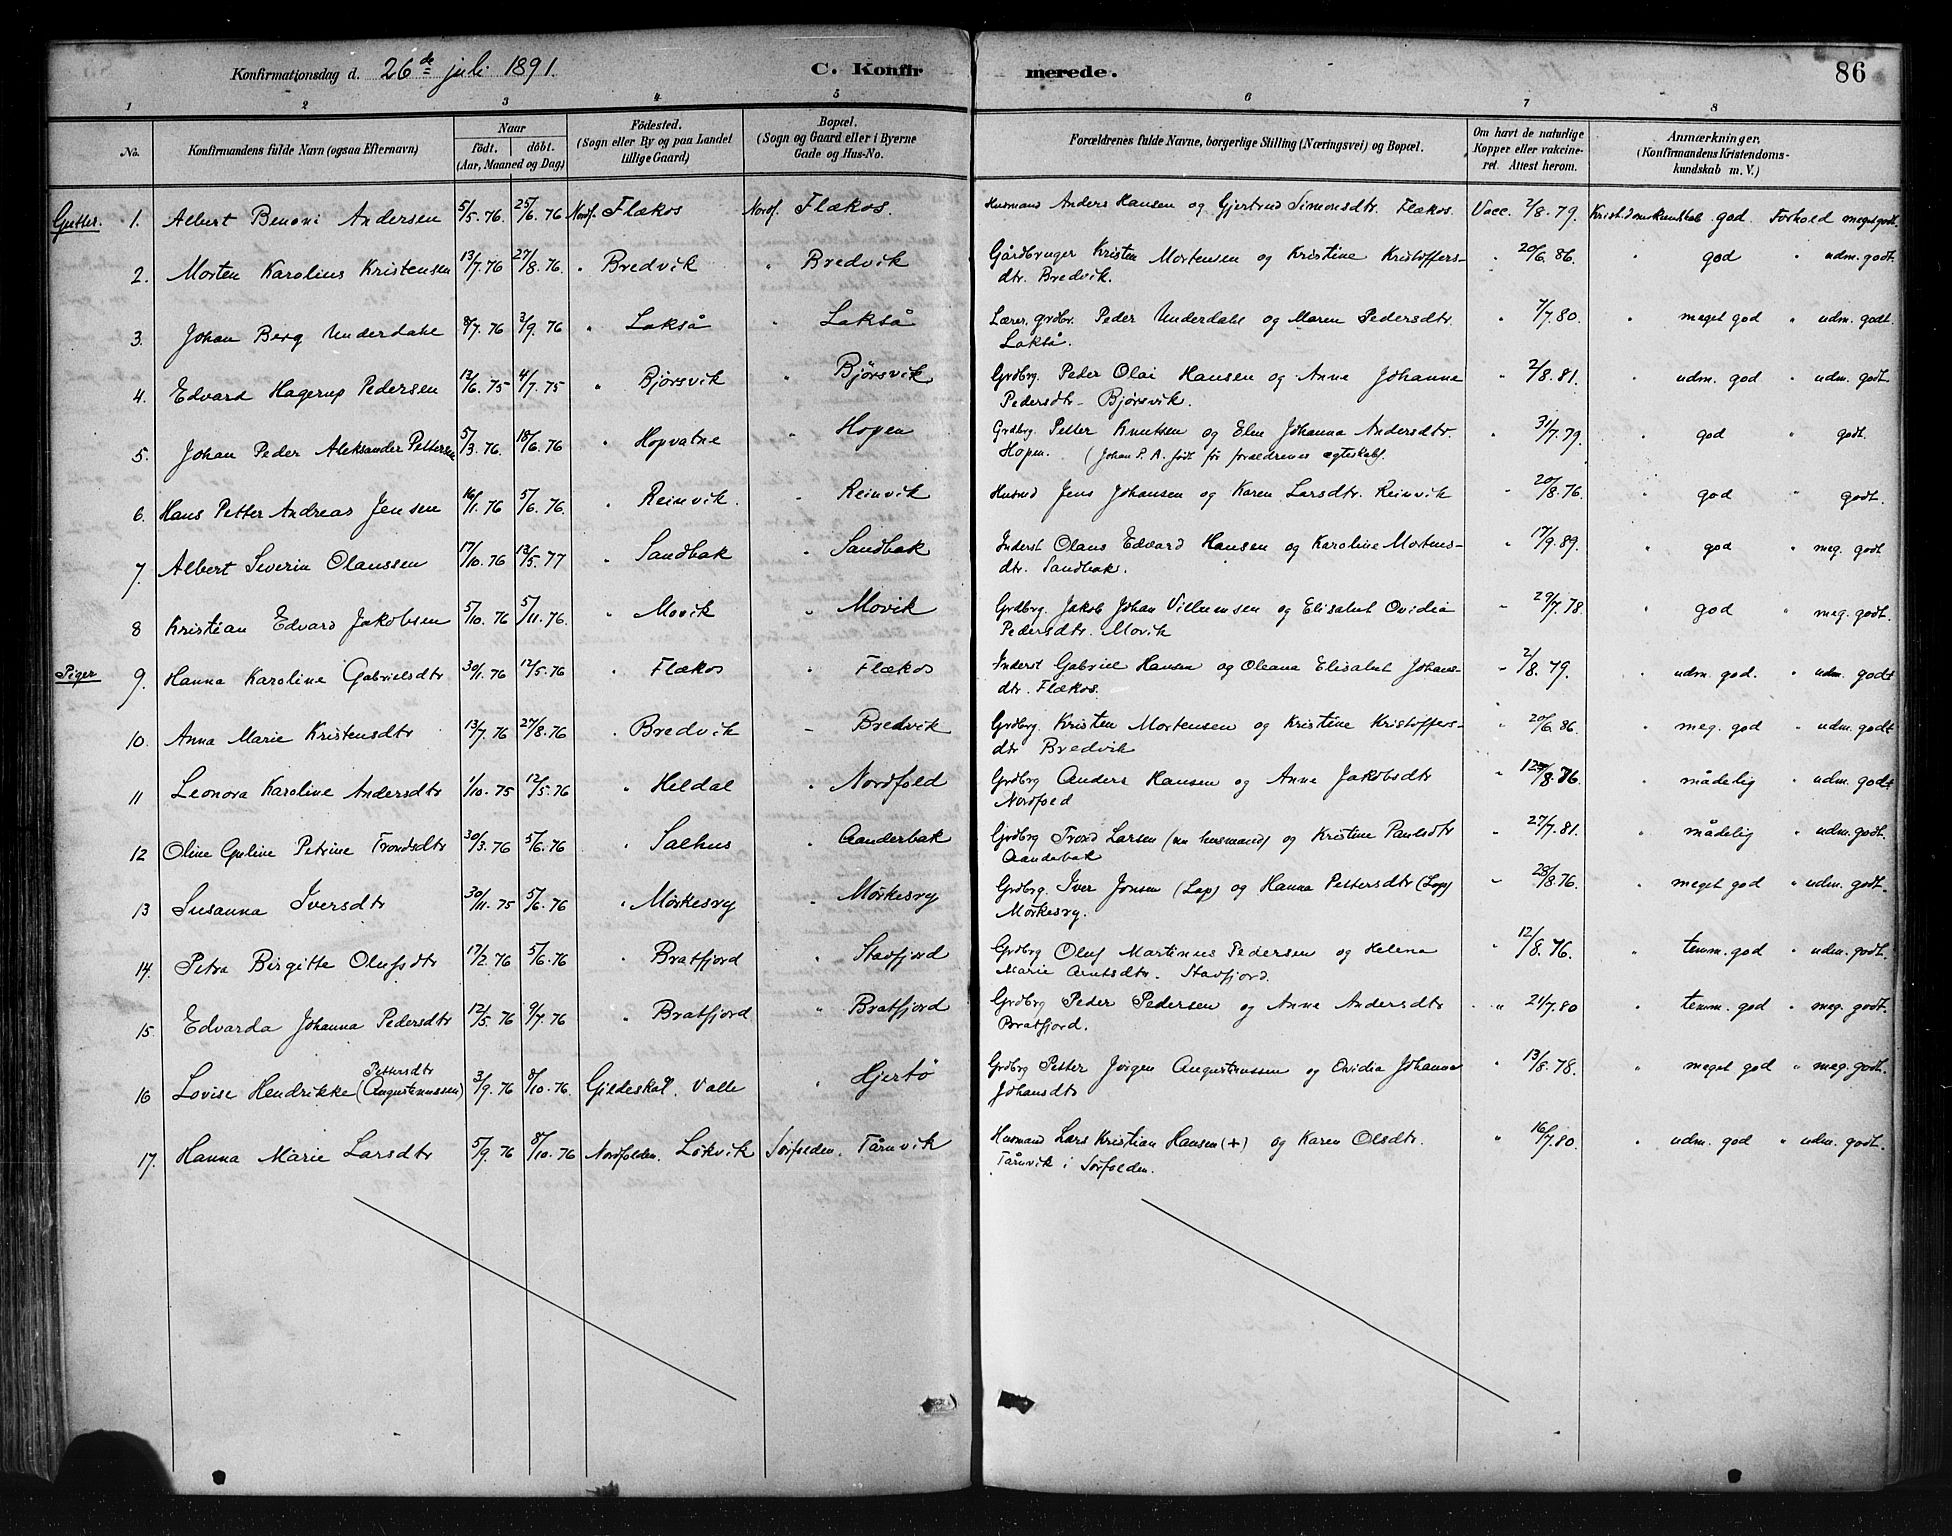 Konfirmationsdag d. 26de juli 1891. C. Konfirmerede. 86
1 2 3 4 5 6 7 8
No. Konfirmandens fulde Navn (ogsaa Efternavn) Naar födt. döbt. (Aar, Maaned og Dag) Födested. (Sogn eller By og paa Landet tillige Gaard) Bopæl. (Sogn og Gaard eller i Byerne Gade og Hus-No. Forældrenes fulde Navne, borgerlige Stilling (Næringsvei) og Bopæl. Om havt de naturlige Kopper eller vakcineret. Attest herom. Anmærkninger. (Konfirmandens Kristendomskundskab m. V.)
Gutter. 1. Albert Benoni Andersen 5/5 76 25/6 76 Nordf. Flækos Nordf. Flækos. Husmand Anders Hansen og Gjertrud Simonsdtr. Flækos. Vacc. 2/8. 79. Krist.domskundskab god Forhold meget godt.
2. Morten Karolius Kristensen 13/7 76 27/8. 76. " Bredvik " Bredvik Gårdbruger Kristen Mortensen og Kristine Kristoffers-
dtr. Bredvik. " 20/6. 86. " god " udm. godt.
3. Johan Berg Underdahl 8/7. 76 3/9. 76 " Lakså " Lakså Lærer, grdbr. Peder Underdahl og Maren Pedersdtr.
Lakså. " 7/7. 80. " meget god " udm. godt.
4. Edvard Hagerup Pedersen 12/6. 75 4/7. 75 " Bjørsvik " Bjørsvik Grdbrg. Peder Olai Hansen og Anne Johanna
Pedersdtr. Bjørsvik. " 2/8. 81. " udm. god " udm. godt.
5. Johan Peder Aleksander Pettersen 5/3. 76. 18/6. 76 " Hopvatne " Hopen Grdbrg. Petter Knutsen og Elen Johanna Andersdtr.
Hopen. (Johan P. A. født før forældrenes ægteskab). " 31/7. 79. " god " godt.
6. Hans Petter Andreas Jensen 16/1. 76 5/6. 76 " Reinvik. " Reinvik Husmd Jens Johansen og Karen Larsdtr. Reinvik " 20/8. 76. " god " godt.
7 Albert Severin Olaussen 17/10. 76 13/5. 77 " Sandbak " Sandbak Inderst Olaus Edvard Hansen og Karoline Mortens-
dtr. Sandbak. " 17/9. 89. " god " meg. godt.
8 Kristian Edvard Jakobsen 5/10. 76 5/11. 76. " Movik " Movik Grdbrg. Jakob Johan Villumsen og Elisabet Ovidia
Pedersdtr. Movik " 29/7. 78 " god " meg. godt.
Piger 9. Hanna Karoline Gabrielsdtr 30/1. 76 12/5. 76 " Flækos " Flækos Inderst Gabriel Hansen og Oleana Elisabet Johans-
dtr. Flækos. " 2/8. 79. " udm. god. " udm. godt
10. Anna Marie Kristensdtr 13/7. 76 27/8. 76 " Bredvik " Bredvik Grdbrg. Kristen Mortensen og Kristine Kristoffers-
dtr Bredvik " 20/6. 86. " meg. god " udm. godt
11 Leonora Karoline Andersdtr 1/10. 75 12/5. 76 " Heldal " Nordfold Grdbrg Anders Hansen og Anne Jakobsdtr
Nordfold " 12/8. 76. " mådelig " udm. godt
12 Oline Guline Petrine Trondsdtr 30/3. 76 5/6. 76 " Salhus " Aanderbak Grdbrg Trond Larsen (nu husmand) og Kristine Paulsdtr
Aanderbak " 27/7. 81. " mådelig " udm. godt.
13 Susanna Iversdtr 30/11. 75 5/6. 76 " Mørkesvg " Mørkesvg Grdbrg. Iver Jonsen (Lap) og Hanna Pettersdtr (Lap)
Mørkesvg. " 28/8. 76. " meget god " udm. godt.
14. Petra Birgitte Olufsdtr 17/2. 76 5/6. 76 " Bratfjord " Stavfjord Grdbrg Oluf Martinus Pedersen og Helena
Marie Arntsdtr. Stavfjord. " 12/8. 76. " temm. god " udm. godt.
15. Edvarda Johanna Pedersdtr 12/5. 76 9/7. 76 " Bratfjord " Bratfjord Grdbrg Peder Pedersen og Anne Andersdtr
Bratfjord. " 21/7. 80 " temm. god " meg. godt.
16 Lovise Hendrikke Pettersdtr (Augustinussen) 3/9. 76 8/10. 76. Gildeskål. Valle " Hjertø Grdbrg Petter Jørgen Augustinussen og Ovidia Johanna
Johansdtr " 13/8. 78. " meget god " meg. godt.
17. Hanna Marie Larsdtr 5/9. 76 8/10. 76 Nordfolden. Løkvik Sørfolden. Tårnvik Husmand Lars Kristian Hansen (+) og Karen Olsdtr.
Tårnvik i Sørfolden. " 16/7. 80. " udm. god " udm. godt.